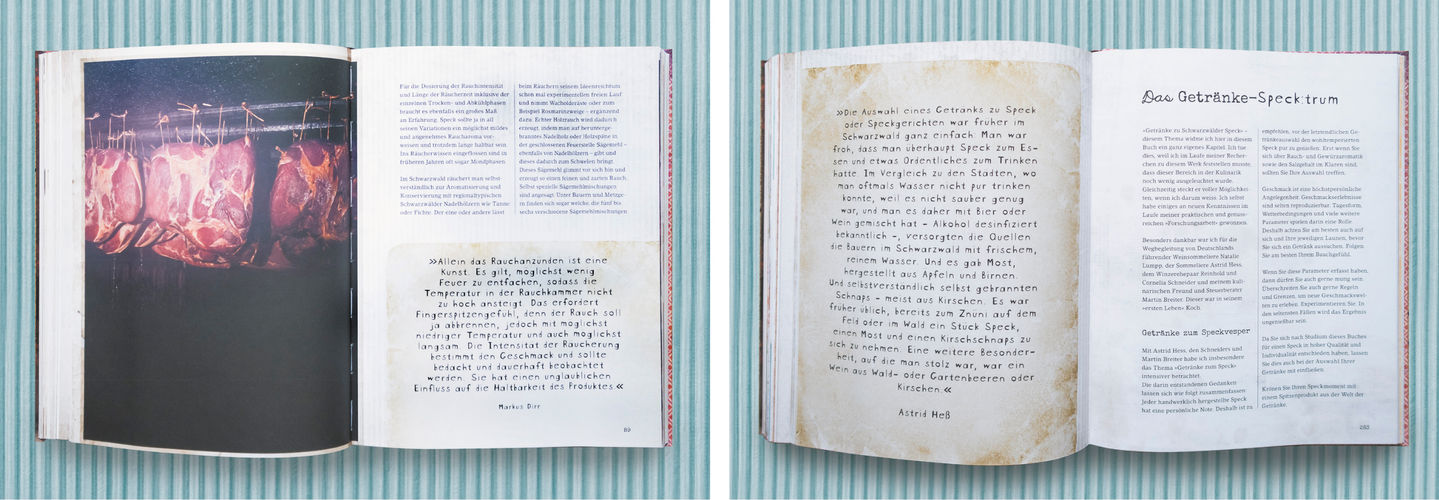 Für die Dosierung der Rauchintensität
und Länge der Räucherzeit inklusive der
einzelnen Trocken- und Abkühlphasen
braucht es ebenfalls ein großes Maß
an Erfahrung. Speck sollte ja in all
seinen Variationen ein möglichst mildes
und angenehmes Raucharoma vor-
weisen und trotzdem lange haltbar sein.
Ins Räucherwissen eingeflossen sind in
früheren Jahren oft sogar Mondphasen.
Im Schwarzwald räuchert man selbst-
verständlich zur Aromatisierung und
Konservierung mit regionaltypischen
Schwarzwälder Nadelhölzern wie Tanne
oder Fichte. Der eine oder andere lässt
beim Räuchern seinem Ideenreichtum
schon mal experimentellen freien Lauf
und nimmt Wacholderäste oder zum
Beispiel Rosmarinzweige – ergänzend
dazu. Echter Holzrauch wird dadurch
erzeugt, indem man auf herunterge-
branntes Nadelholz oder Holzspäne in
der geschlossenen Feuerstelle Sägemehl –
ebenfalls von Nadelhölzern – gibt und
dieses dadurch zum Schwelen bringt.
Dieses Sägemehl glimmt vor sich hin und
erzeugt so einen feinen und zarten Rauch.
Selbst spezielle Sägemehlmischungen
sind angesagt. Unter Bauern und Metzge-
rn finden sich sogar welche, die fünf bis
sechs verschiedene Sägemehlmischungen
»Allein das Rauchanzünden ist eine
Kunst. Es gilt, möglichst wenig
Feuer zu entfachen, sodass die
Temperatur in der Rauchkammer nicht
zu hoch ansteigt. Das erfordert
Fingerspitzengefühl, denn der Rauch soll
ja abbrennen, jedoch mit möglichst
niedriger Temperatur und auch möglichst
langsam. Die Intensität der Räucherung
bestimmt den Geschmack und sollte
bedacht und dauerhaft beobachtet
werden. Sie hat einen unglaublichen
Einfluss auf die Haltbarkeit des Produktes.«
Markus Dirr
89
»Die Auswahl eines Getränks zu Speck
oder Speckgerichten war früher im
Schwarzwald ganz einfach. Man war
froh, dass man überhaupt Speck zum Es-
sen und etwas Ordentliches zum Trinken
hatte. Im Vergleich zu den Städten, wo
man oftmals Wasser nicht pur trinken
konnte, weil es nicht sauber genug
war, und man es daher mit Bier oder
Wein gemischt hat – Alkohol desinfiziert
bekanntlich –, versorgten die Quellen
die Bauern im Schwarzwald mit frischem,
reinem Wasser. Und es gab Most,
hergestellt aus Äpfeln und Birnen.
Und selbstverständlich selbst gebrannten
Schnaps – meist aus Kirschen. Es war
früher üblich, bereits zum Znüni auf dem
Feld oder im Wald ein Stück Speck,
einen Most und einen Kirschschnaps zu
sich zu nehmen. Eine weitere Besonder-
heit, auf die man stolz war, war ein
Wein aus Wald- oder Gartenbeeren oder
Kirschen.«
Astrid Heß
Das Getränke-Speck:trum
«Getränke zu Schwarzwälder Speck» –
diesem Thema widme ich hier in diesem
Buch ein ganz eigenes Kapitel. Ich tue
dies, weil ich im Laufe meiner Recher-
chen zu diesem Werk feststellen musste,
dass dieser Bereich in der Kulinarik
noch wenig ausgeleuchtet wurde.
Gleichzeitig steckt er voller Möglichkei-
ten, wenn ich darum weiss. Ich selbst
habe einiges an neuen Kenntnissen im
Laufe meiner praktischen und genuss-
reichen «Forschungsarbeit» gewonnen.
Besonders dankbar war ich für die
Wegbegleitung von Deutschlands
führender Weinsommeliere Natalie
Lumpp, der Sommeliere Astrid Hess,
dem Winzerehepaar Reinhold und
Cornelia Schneider und meinem kuli-
narischen Freund und Steuerberater
Martin Breiter. Dieser war in seinem
«ersten Leben» Koch.
Getränke zum Speckvesper
Mit Astrid Hess, den Schneiders und
Martin Breiter habe ich insbesondere
das Thema «Getränke zum Speck»
intensiver betrachtet.
Die darin entstandenen Gedanken
lassen sich wie folgt zusammenfassen:
Jeder handwerklich hergestellte Speck
hat eine persönliche Note. Deshalb ist zu
empfehlen, vor der letztendlichen Ge-
tränkeauswahl den wohltemperierten
Speck pur zu genießen. Erst wenn Sie
sich über Rauch- und Gewürzaromatik
sowie den Salzgehalt im Klaren sind,
sollten Sie Ihre Auswahl treffen.
Geschmack ist eine höchstpersönliche
Angelegenheit. Geschmackserlebnisse
sind selten reproduzierbar. Tagesform,
Wetterbedingungen und viele weitere
Parameter spielen darin eine Rolle.
Deshalb achten Sie am besten auch auf
sich und Ihre jeweiligen Launen, bevor
Sie sich ein Getränk aussuchen. Folgen
Sie am besten Ihrem Bauchgefühl.
Wenn Sie diese Parameter erfasst haben,
dann dürfen Sie auch gerne mutig sein.
Überschreiten Sie auch gerne Regeln
und Grenzen, um neue Geschmackswel-
ten zu erleben. Experimentieren Sie. In
den seltensten Fällen wird das Ergebnis
ungenießbar sein.
Da Sie sich nach Studium dieses Buches
für einen Speck in hoher Qualität und
Individualität entschieden haben, lassen
Sie dies auch bei der Auswahl Ihrer
Getränke mit einfließen.
Krönen Sie Ihren Speckmoment mit
einem Spitzenprodukt aus der Welt der
Getränke.
263